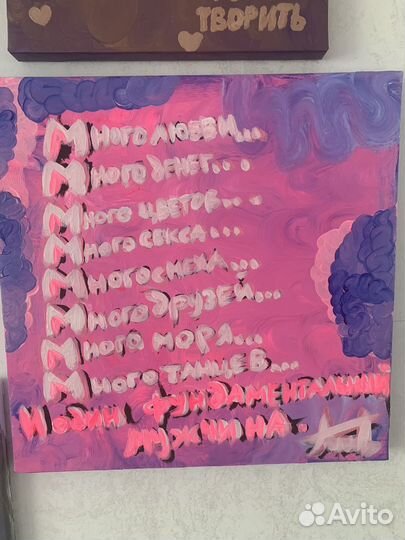 ТВОРИТЬ
Много любви...
Много денег...
Много цветов...
Много секса...
Много смеха...
Много друзей...
Много моря...
Много танцев...
И один фундаментальный
мужчина.
Avito